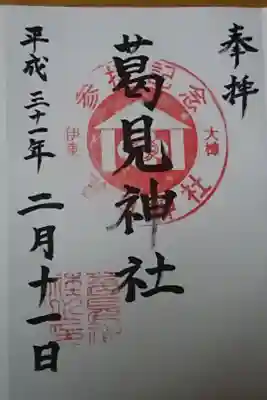 奉拝
葛見神社
平成三十一年二月十一日
参拝記念
大樟
伊東